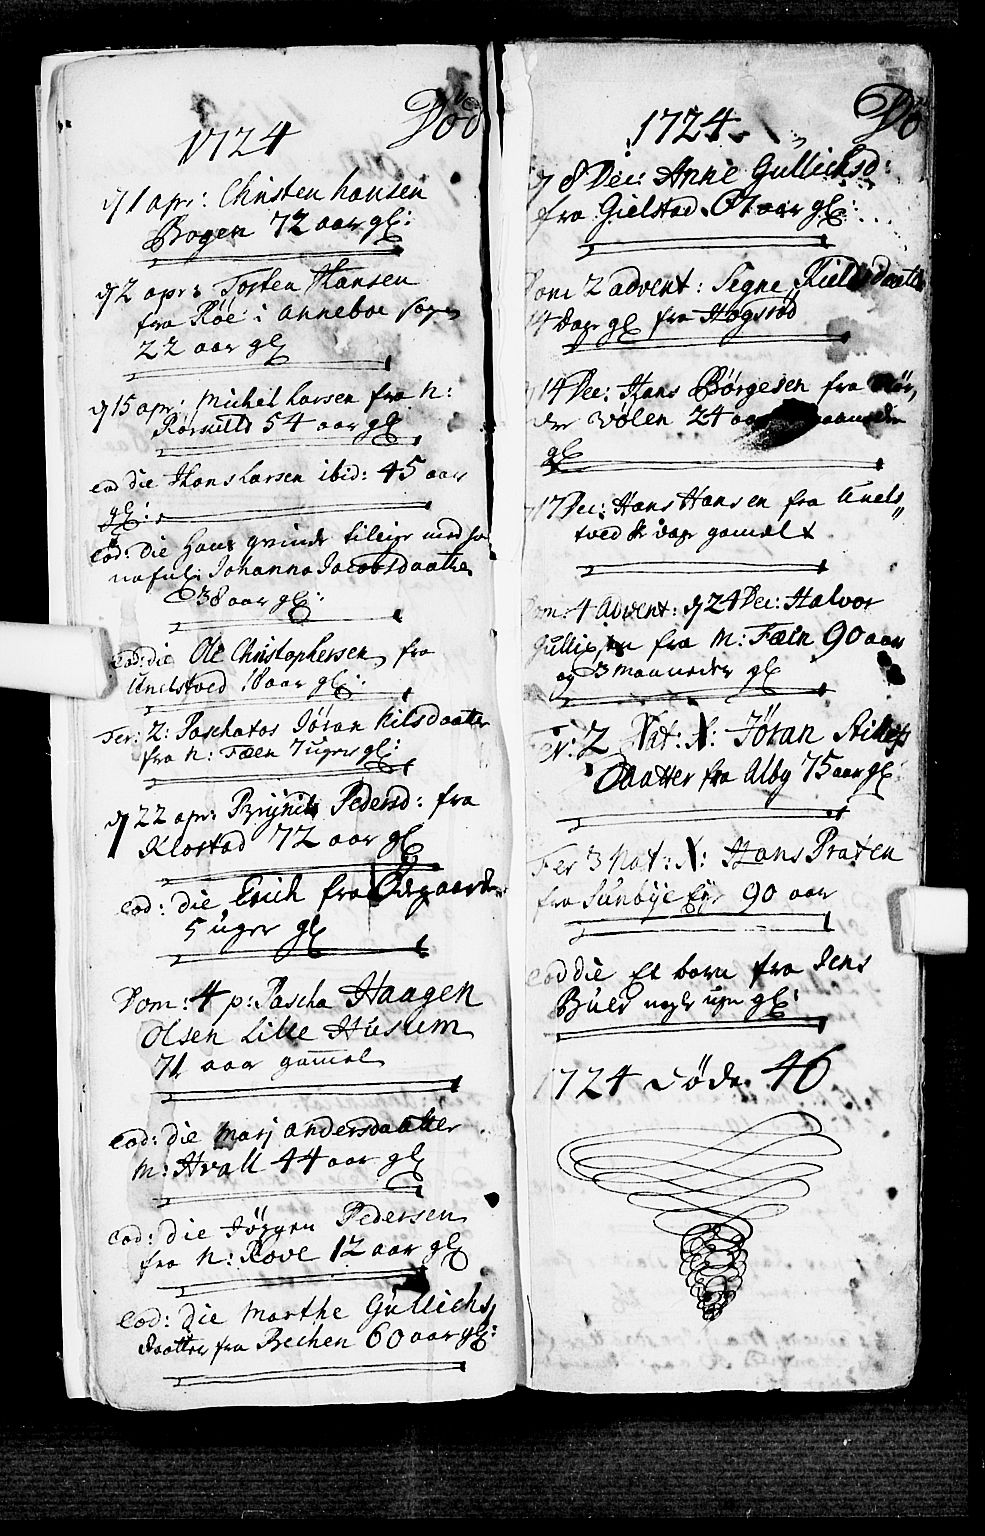 1724 Död
d 1 apr: Christen hansen
Bogen 72 aar gl:
d 2 apr: Tosten Hansen
fra Röe i anneboe sogn
22 aar gl
d 15 apr: Michel Larsen fra N:
54 aar gl
eod die Hans Larsen ibid: 45 aar
gl:
eod: die hans qvinde tilige med
Johanna Jacobsdaatter
38 aar gl:
eod: die Ole Christophersen fra
Unelstved 18 aar gl:
Fer: 2: Paschatos Jöran Nilsdaatter
fra N: Fæen 7 uger gl:
d 22 apr: Brynild Pedersd: fra
Klostad 72 aar gl
eod: die Erich fra Ödegaarden
5 uger gl
Dom: 4 p: Pascha Haagen
Olsen Lille Huslem
71 aar gammel
eod: die Marj andersdaatter
M: Hvall 44 aar gl
eod: die Jörgen Pedersen
fra N: Rove 12 aar gl
eod: die Marthe Gullichs
daatter fra Bechen 60 aar gl:
1724. Dö
d 8 Dec: Anne Gullichsd:
fra Gielstad. 67 aar gl:
Dom 2 advent: Segne Kieldsdaatter
14 dage gl fra Hogsröd
14 Dec: Hans Börgesen fra
Völen 24 maaneder
gl
17 Dec: Hans Hansen fra Unels
tved 8 dage gamel
Dom: 4 Advent: d 24 Dec: Halvor
Gullixen fra M: Fæen 90 aar
og 3 maaneder gl
Fer: 2 Nat: X: Jöran
Daatter fra Alby 75 aar gl:
Fer 3 Nat: X: Hans Praten
fra Sunbÿe Eÿe 90 aar
eod die Et barn fra Jens
Buer nogle uger gl:
1724 döde 46